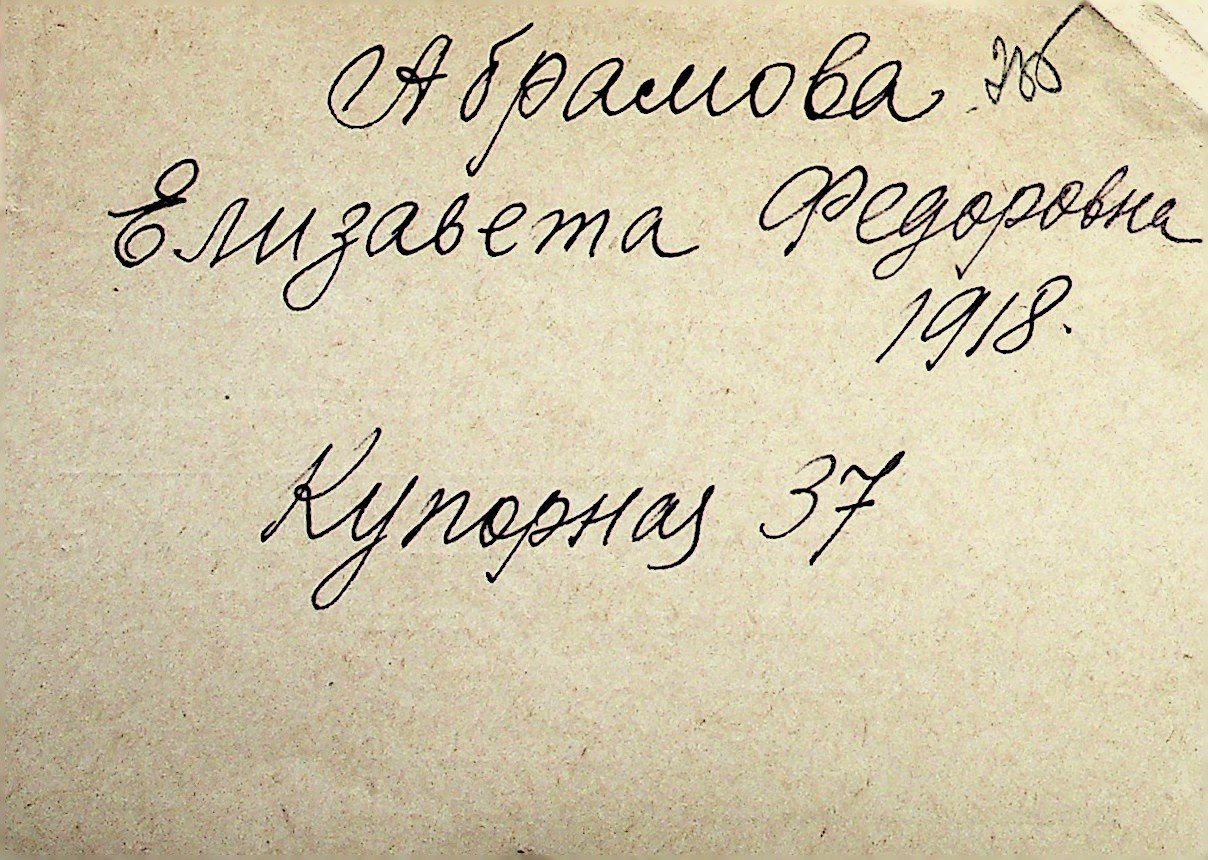 Абрамова
Елизавета Федоровна
1918.
Купорная 37